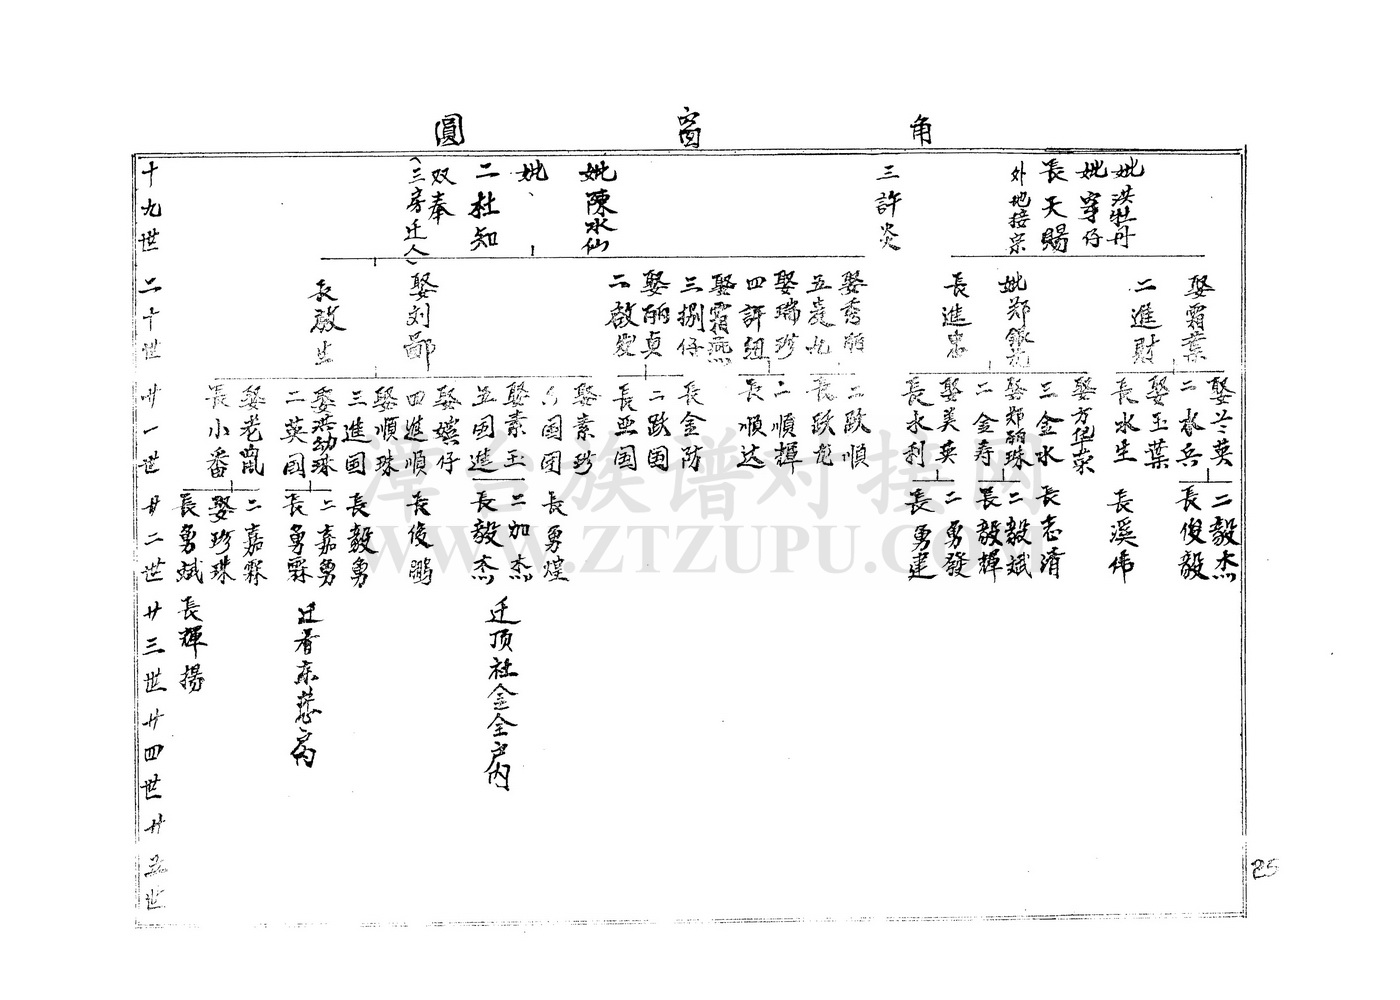 圓窗角
十九世
二十世
廿一世
廿二世
廿三世
廿四世
廿五世
妣洪牡丹
妣穿仔
長天賜
外地接宗
三許炎
妣陳水仙
妣、
二杜知
双奉
(三房迁人)
娶霜葉
二進財
妣郑銀花
長進忠
娶秀丽
娶瑞珍
四許纽
娶霜燕
三捌仔
娶丽貞
二啟發
娶刘鄙
長啟生
娶兰英
二水兵
娶玉葉
長水生
三金水
娶郑丽珠
二金寿
娶美英
長水利
二跃順
長跃龙
二順輝
長順达
長金防
二跃国
長亚国
娶素珍
国团
娶素玉
五国進
娶嫔仔
四進順
娶順珠
三進国
娶洪幼珠
二英国
長小番
二毅杰
長俊毅
長溪伟
長志清
二毅斌
長毅輝
二勇發
長勇建
長勇煌
二加杰
長毅杰
長俊鹏
長毅勇
二嘉勇
長勇霖
二嘉霖
娶珍珠
長勇斌
迁顶社金全户内
長輝揚
漳台族谱对接网
WWW.ZTZUPU.COM
25